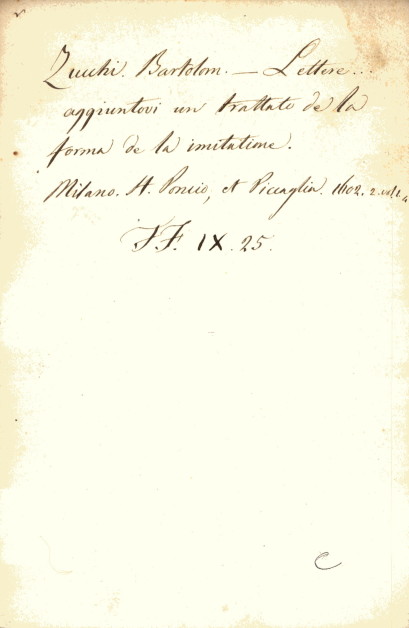 Zucchi. Bartolom. — Lettere...
aggiuntovi un trattato de la
forma de la imitatione.
Milano. H. Poncio, et Piccaglia. 1602. 2. vol.
FF. IX. 25.
C